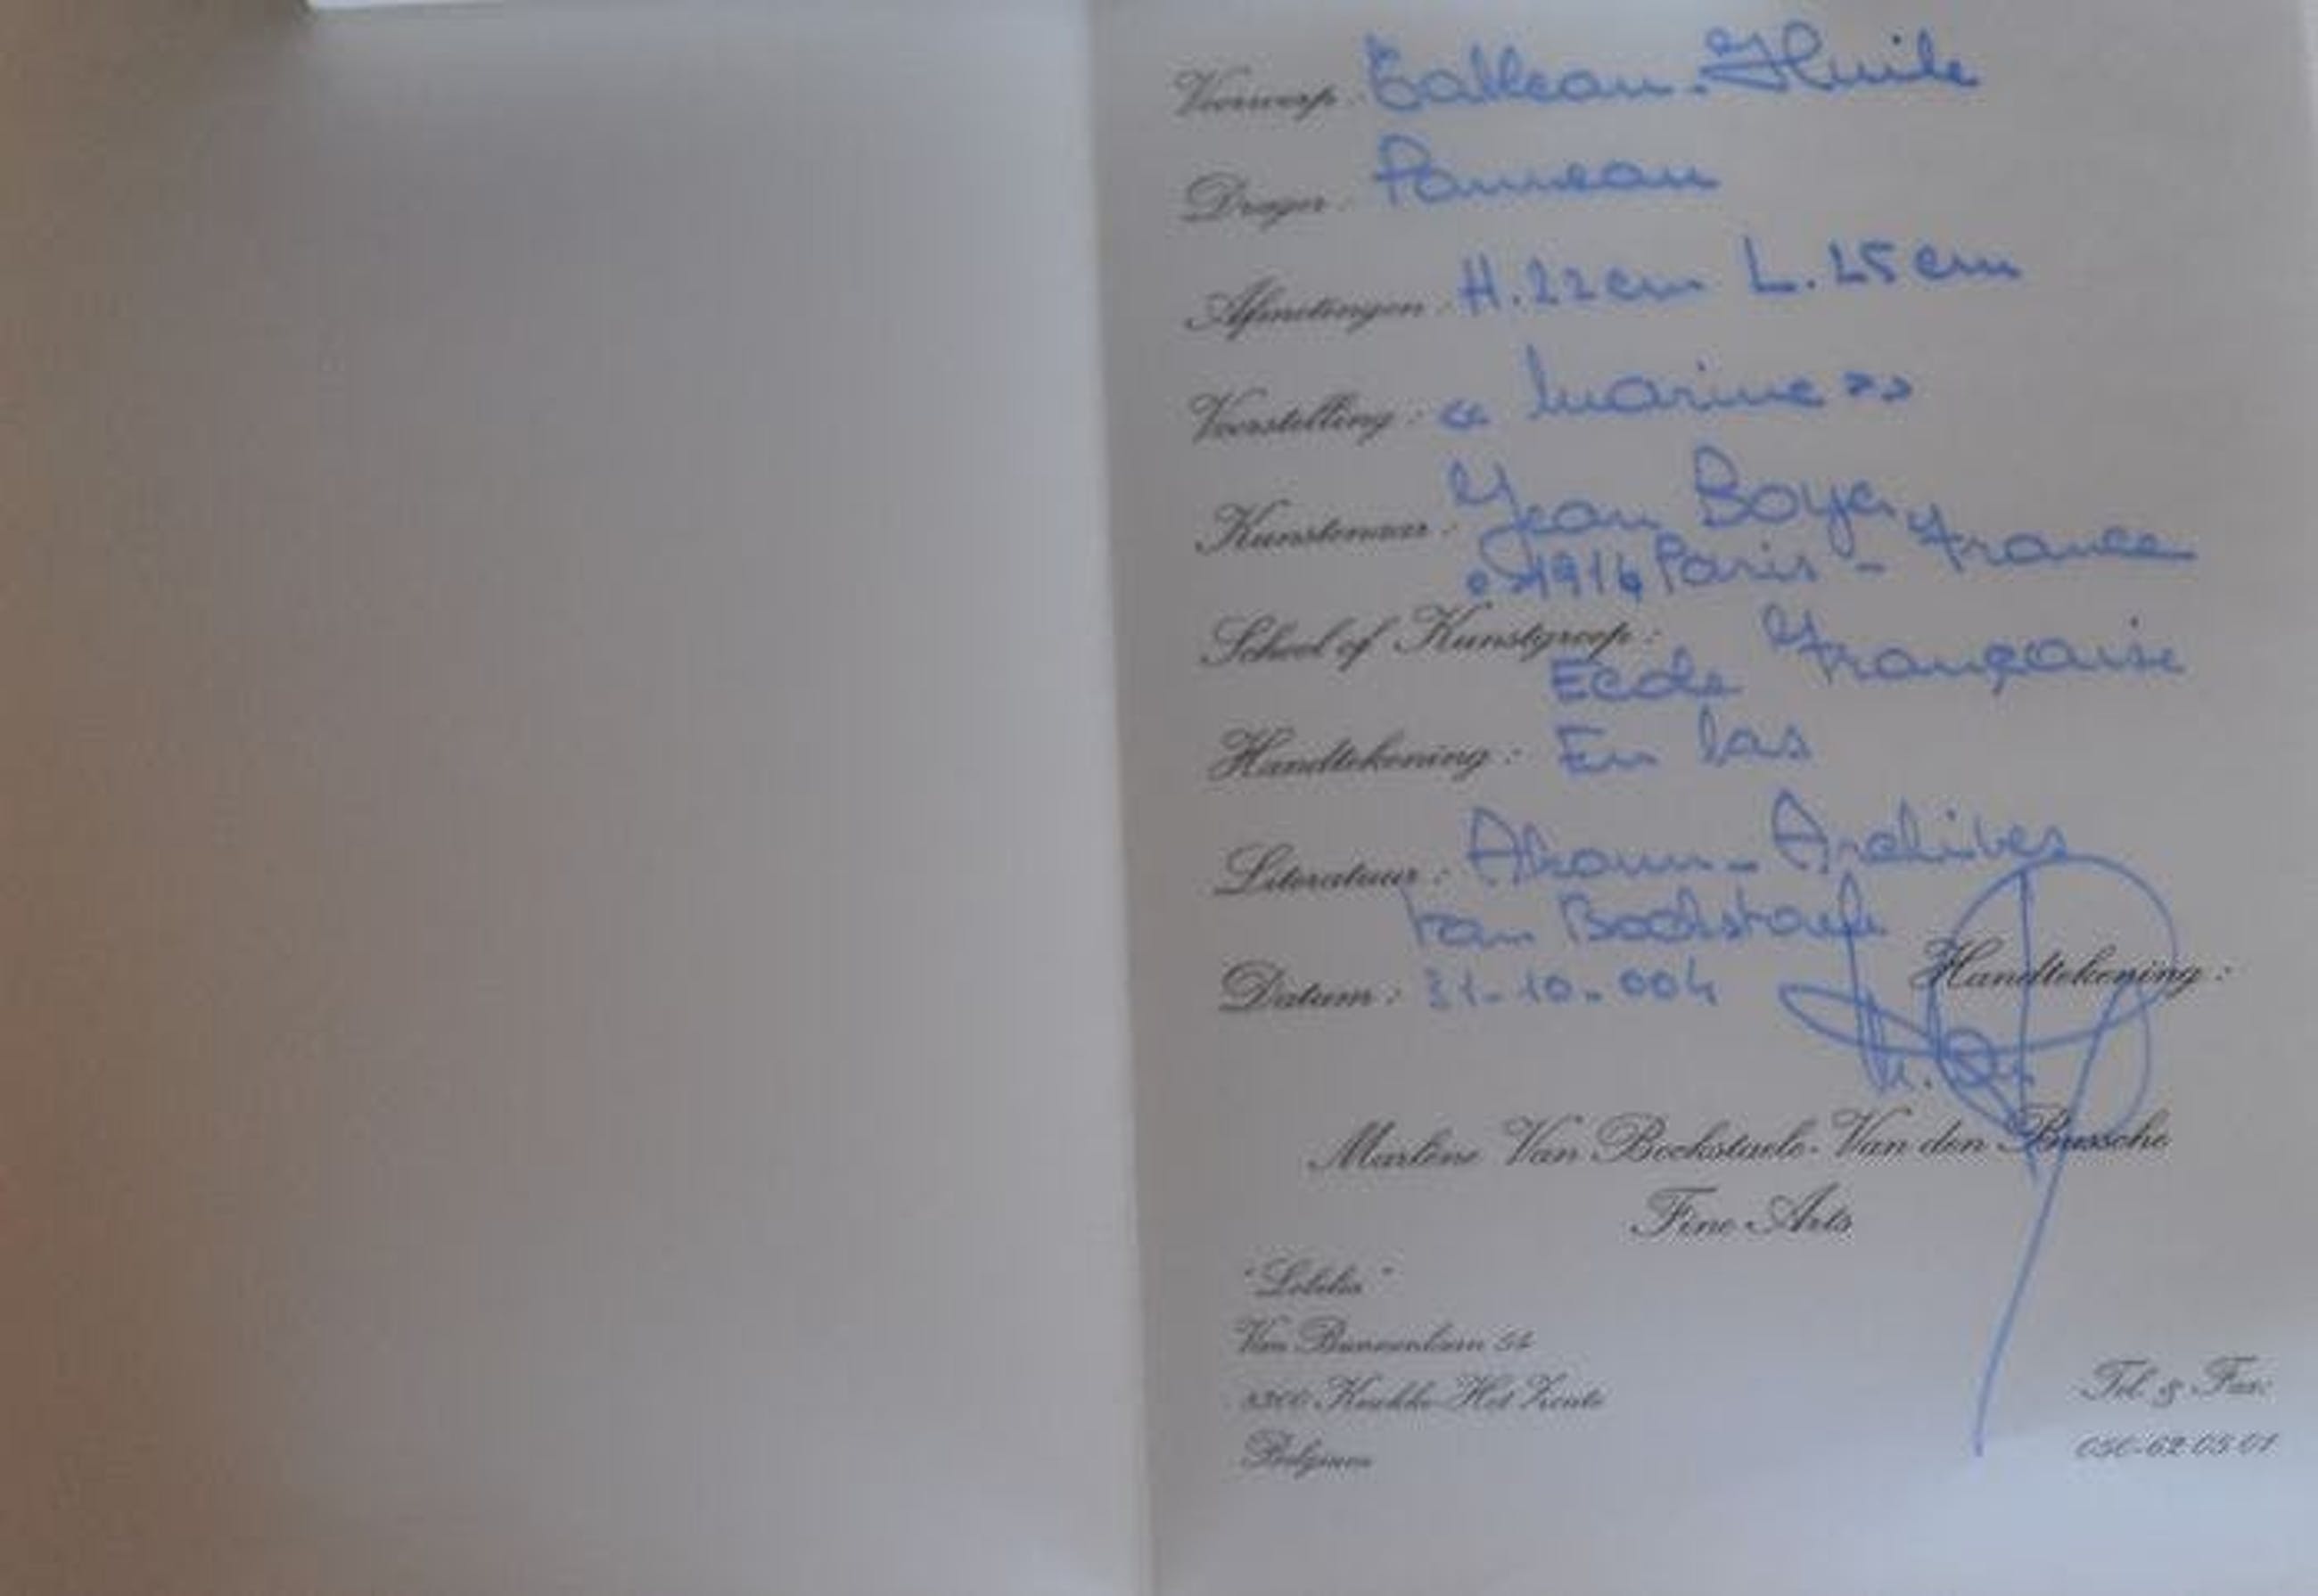 Voorwerp : Tableau - Huile
Drager : Panneau
Afmetingen : H. 22 cm L. 25 cm
Voorstelling : « Marine »
Kunstenaar : Jean Boyer
1914 Paris - France
School of Kunstgroep :
Ecole Française
Handtekening : En bas
Literatuur : Akoun - Archives
Van Bockstaele
Datum : 31-10-004 Handtekening :
Marlène Van Bockstaele-Van den Bussche
Fine Arts
Van Bunnenlaan 54
8300 Knokke-Het Zoute
Belgium
Tel. & Fax:
050-62.05.01